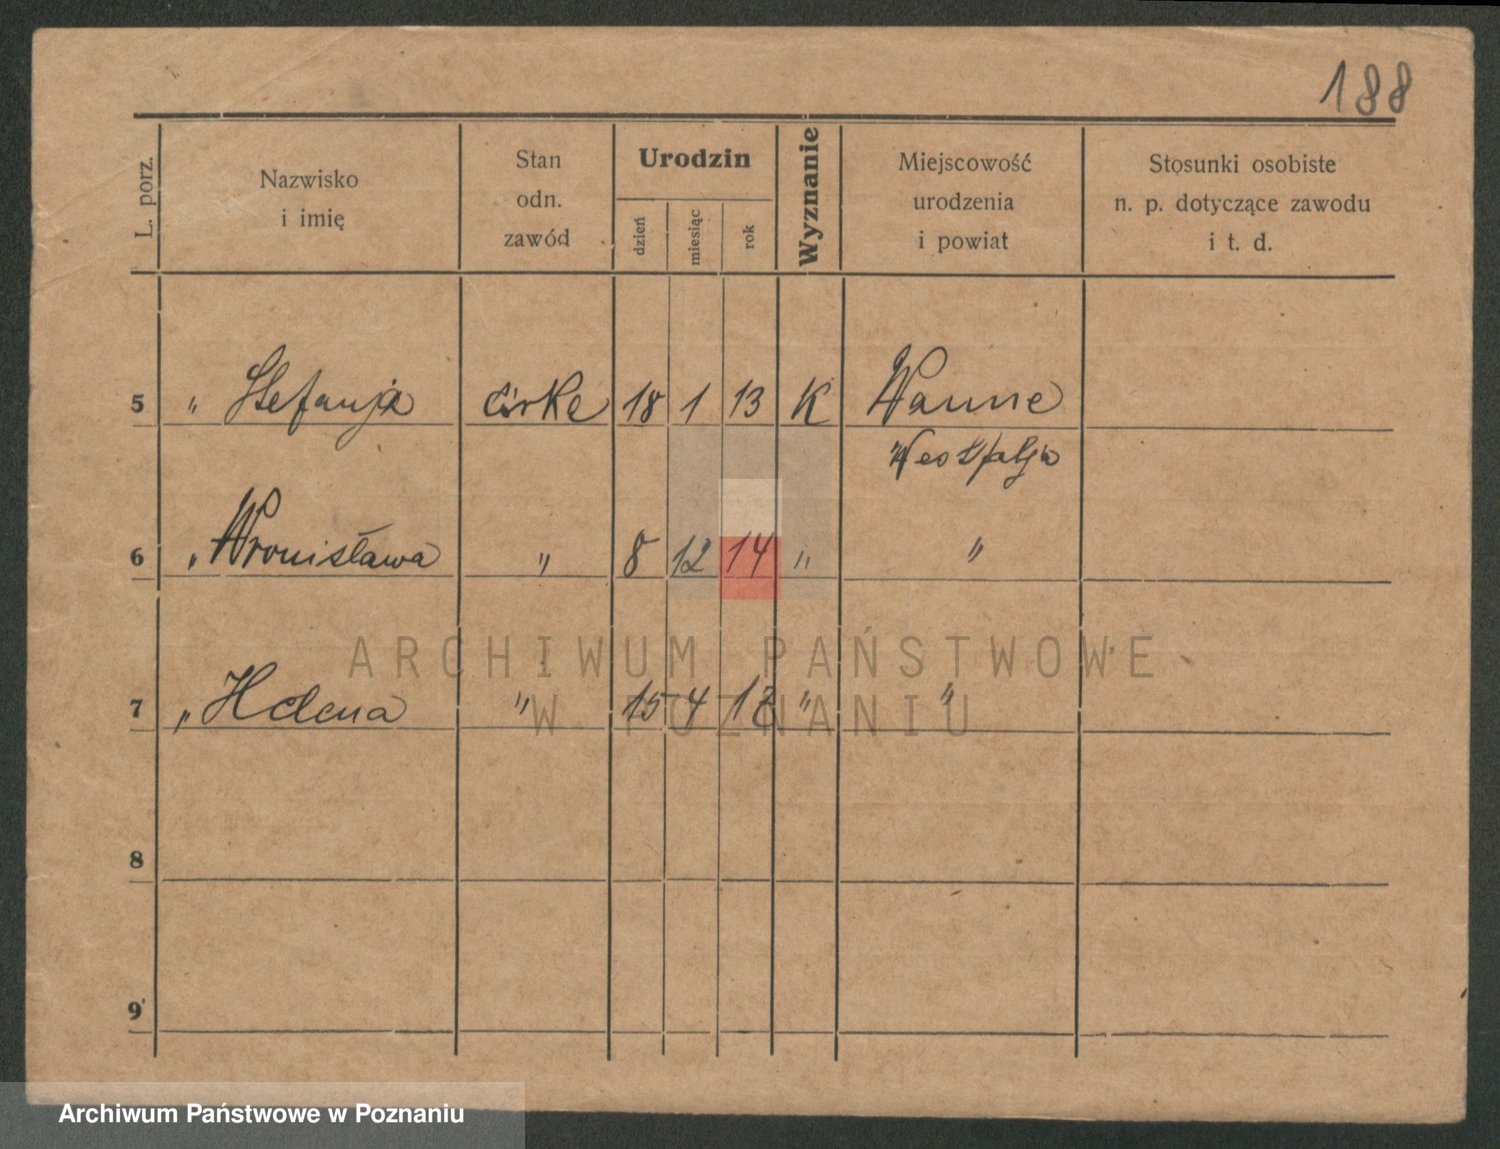 188
L. porz.
Nazwisko
i imię
Stan
odn.
zawód
Urodzin
dzień
miesiąc
rok
Wyznanie
Miejscowość
urodzenia
i powiat
Stosunki osobiste
n. p. dotyczące zawodu
i t. d.
5 " Stefanja córka 18 1 13 K Wanne
Westfalja
6 " Wronisława " 8 12 14 " "
ARCHIWUM PAŃSTWOWE
W POZNANIU
7 " Helena " 15 4 " "
8
9
Archiwum Państwowe w Poznaniu